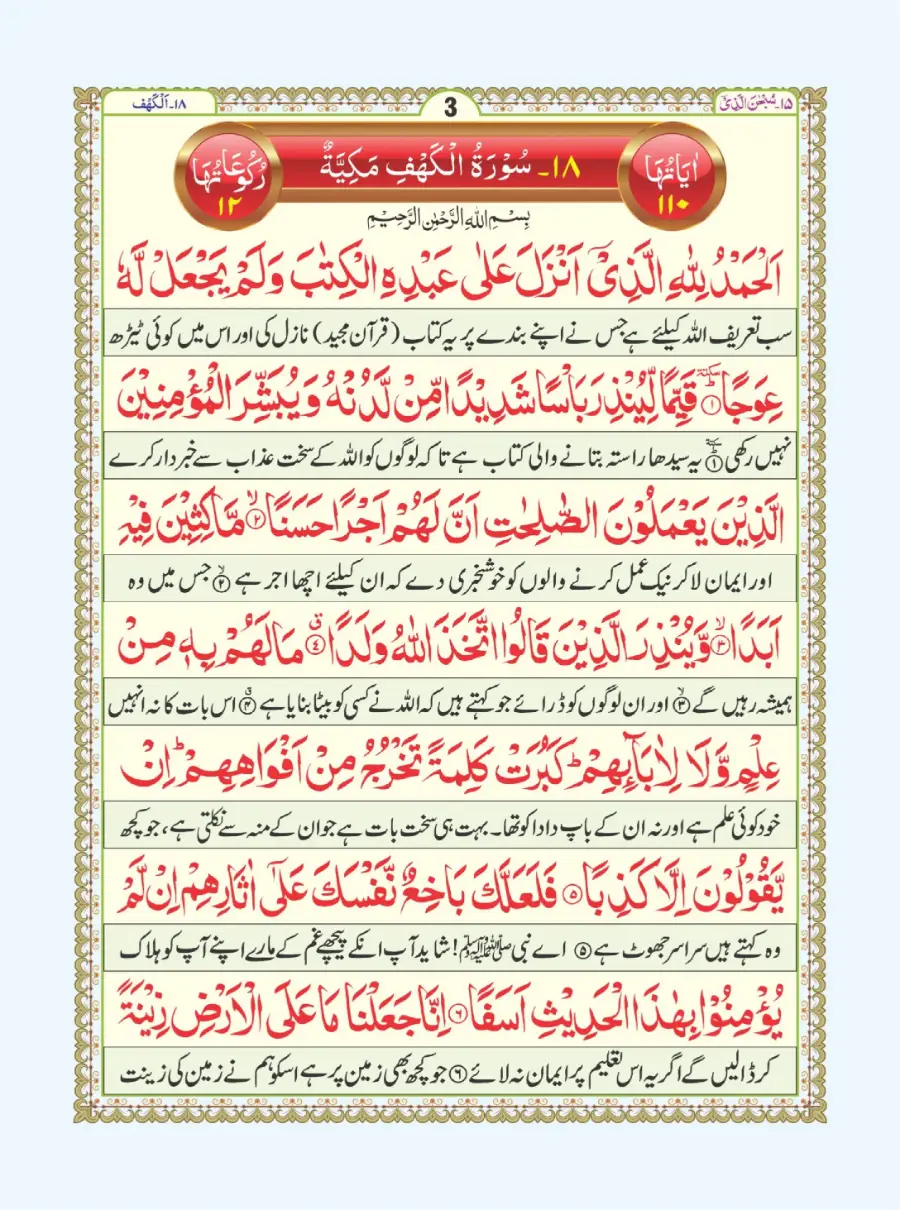 ۱۵۔سُبْحٰنَ الَّذِیْ
3
۱۸۔اَلْکَهْف
اٰیَاتُهَا ۱۱۰
۱۸۔ سُوْرَةُ الْکَهْفِ مَکِیَّةٌ
رُکُوْعَاتُهَا ۱۲
بِسْمِ اللهِ الرَّحْمٰنِ الرَّحِیْمِ
اَلْحَمْدُ لِلّٰهِ الَّذِیْۤ اَنْزَلَ عَلٰی عَبْدِهِ الْکِتٰبَ وَ لَمْ یَجْعَلْ لَّهٗ
سب تعریف اللہ کیلئے ہے جس نے اپنے بندے پر یہ کتاب (قرآن مجید) نازل کی اور اس میں کوئی ٹیڑھ
عِوَجًا ﴿۱﴾ؕ سکتة قَیِّمًا لِّیُنْذِرَ بَاْسًا شَدِیْدًا مِّنْ لَّدُنْهُ وَ یُبَشِّرَ الْمُؤْمِنِیْنَ
نہیں رکھی ﴿۱﴾ یہ سیدھا راستہ بتانے والی کتاب ہے تاکہ لوگوں کو اللہ کے سخت عذاب سے خبردار کرے
الَّذِیْنَ یَعْمَلُوْنَ الصّٰلِحٰتِ اَنَّ لَهُمْ اَجْرًا حَسَنًا ﴿۲﴾ۙ مَّاکِثِیْنَ فِیْهِ
اور ایمان لا کر نیک عمل کرنے والوں کو خوشخبری دے کہ ان کیلئے اچھا اجر ہے ﴿۲﴾ۙ جس میں وہ
اَبَدًا ﴿۳﴾ۙ وَّ یُنْذِرَ الَّذِیْنَ قَالُوا اتَّخَذَ اللهُ وَلَدًا ﴿۴﴾ۗ مَا لَهُمْ بِهٖ مِنْ
ہمیشہ رہیں گے ﴿۳﴾ۙ اور ان لوگوں کو ڈرائے جو کہتے ہیں کہ اللہ نے کسی کو بیٹا بنایا ہے ﴿۴﴾ۗ اس بات کا نہ انہیں
عِلْمٍ وَّ لَا لِاٰبَآىِٕهِمْ ؕ کَبُرَتْ کَلِمَةً تَخْرُجُ مِنْ اَفْوَاهِهِمْ ؕ اِنْ
خود کوئی علم ہے اور نہ ان کے باپ دادا کو تھا۔ بہت ہی سخت بات ہے جو ان کے منہ سے نکلتی ہے، جو کچھ
یَّقُوْلُوْنَ اِلَّا کَذِبًا ﴿۵﴾ فَلَعَلَّكَ بَاخِعٌ نَّفْسَكَ عَلٰۤی اٰثَارِهِمْ اِنْ لَّمْ
وہ کہتے ہیں سراسر جھوٹ ہے ﴿۵﴾ اے نبی ﷺ! شاید آپ انکے پیچھے غم کے مارے اپنے آپ کو ہلاک
یُؤْمِنُوْا بِهٰذَا الْحَدِیْثِ اَسَفًا ﴿۶﴾ اِنَّا جَعَلْنَا مَا عَلَی الْاَرْضِ زِیْنَةً
کر ڈالیں گے اگر یہ اس تعلیم پر ایمان نہ لائے ﴿۶﴾ جو کچھ بھی زمین پر ہے اسکو ہم نے زمین کی زینت